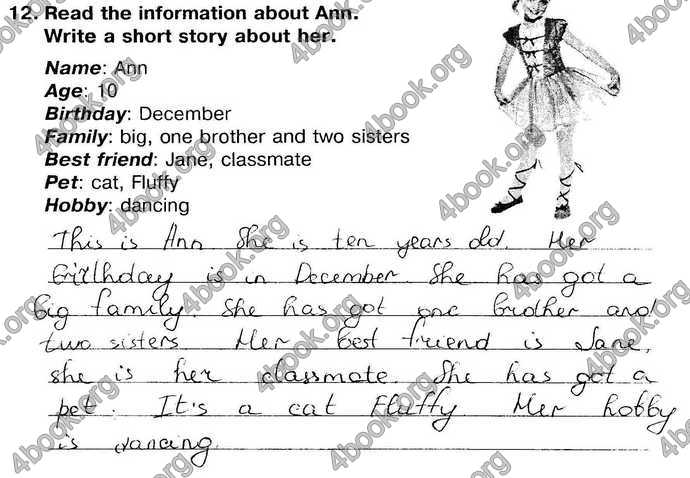 12. Read the information about Ann.
Write a short story about her.
Name: Ann
Age: 10
Birthday: December
Family: big, one brother and two sisters
Best friend: Jane, classmate
Pet: cat, Fluffy
Hobby: dancing
This is Ann. She is ten years old. Her
birthday is in December. She has got a
big family. She has got one brother and
two sisters. Her best friend is Jane,
she is her classmate. She has got a
pet. It's a cat Fluffy. Her hobby
is dancing.
4book.org